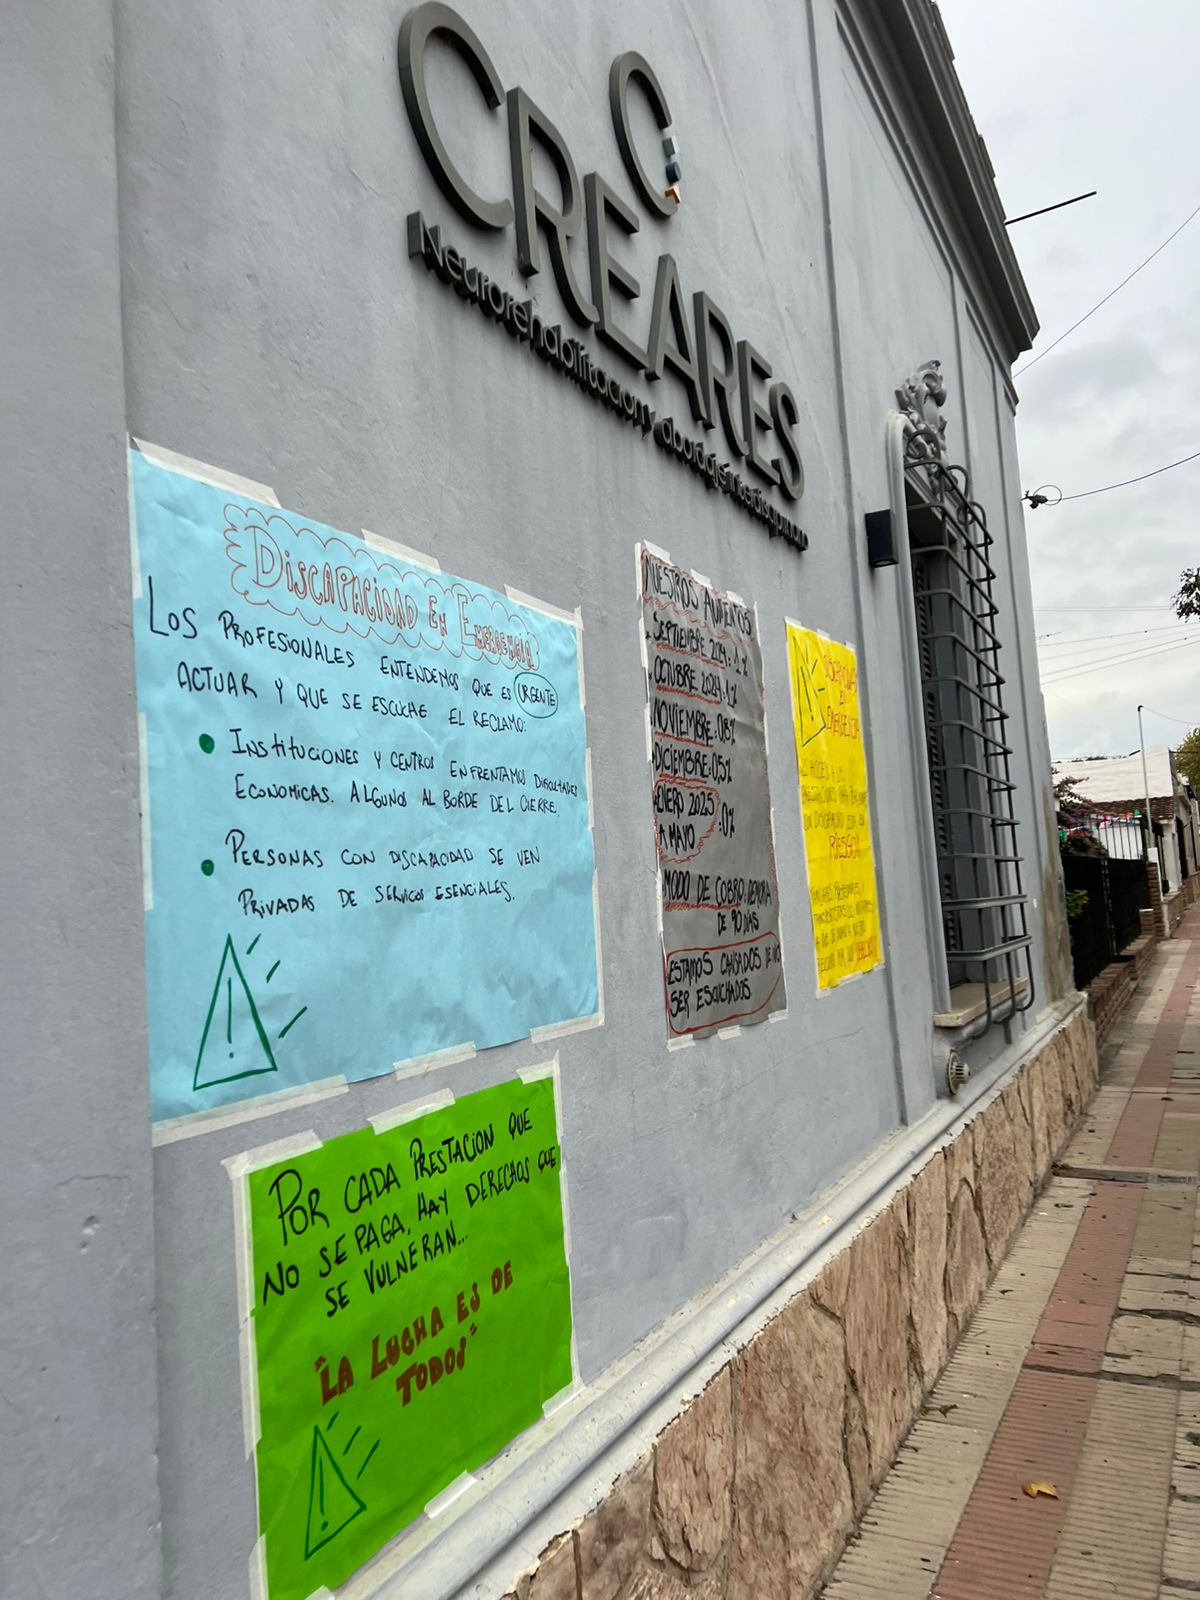 CREARES
Neurorehabilitacion y abordaje interdisciplinario
DISCAPACIDAD EN EMERGENCIA
LOS PROFESIONALES ENTENDEMOS QUE ES URGENTE
ACTUAR Y QUE SE ESCUCHE EL RECLAMO:
INSTITUCIONES Y CENTROS ENFRENTAMOS DIFICULTADES
ECONOMICAS. ALGUNOS AL BORDE DEL CIERRE.
PERSONAS CON DISCAPACIDAD SE VEN
PRIVADAS DE SERVICIOS ESENCIALES.
!
POR CADA PRESTACION QUE
NO SE PAGA, HAY DERECHOS QUE
SE VULNERAN...
"LA LUCHA ES DE
TODOS"
!
NUESTROS AUMENTOS
SEPTIEMBRE : 1%
OCTUBRE 2024: 1%
NOVIEMBRE: 0,8%
DICIEMBRE: 0,5%
ENERO 2025
A MAYO :0%
MODO DE COBRO: DEMORA
DE 90 DIAS
ESTAMOS CANSADOS DE NO
SER ESCUCHADOS
!
DISCAPACIDAD
EN
EMERGENCIA
EL ACCESO A LAS
PRESTACIONES PARA PERSONAS
CON DISCAPACIDAD ESTA EN
RIESGO!